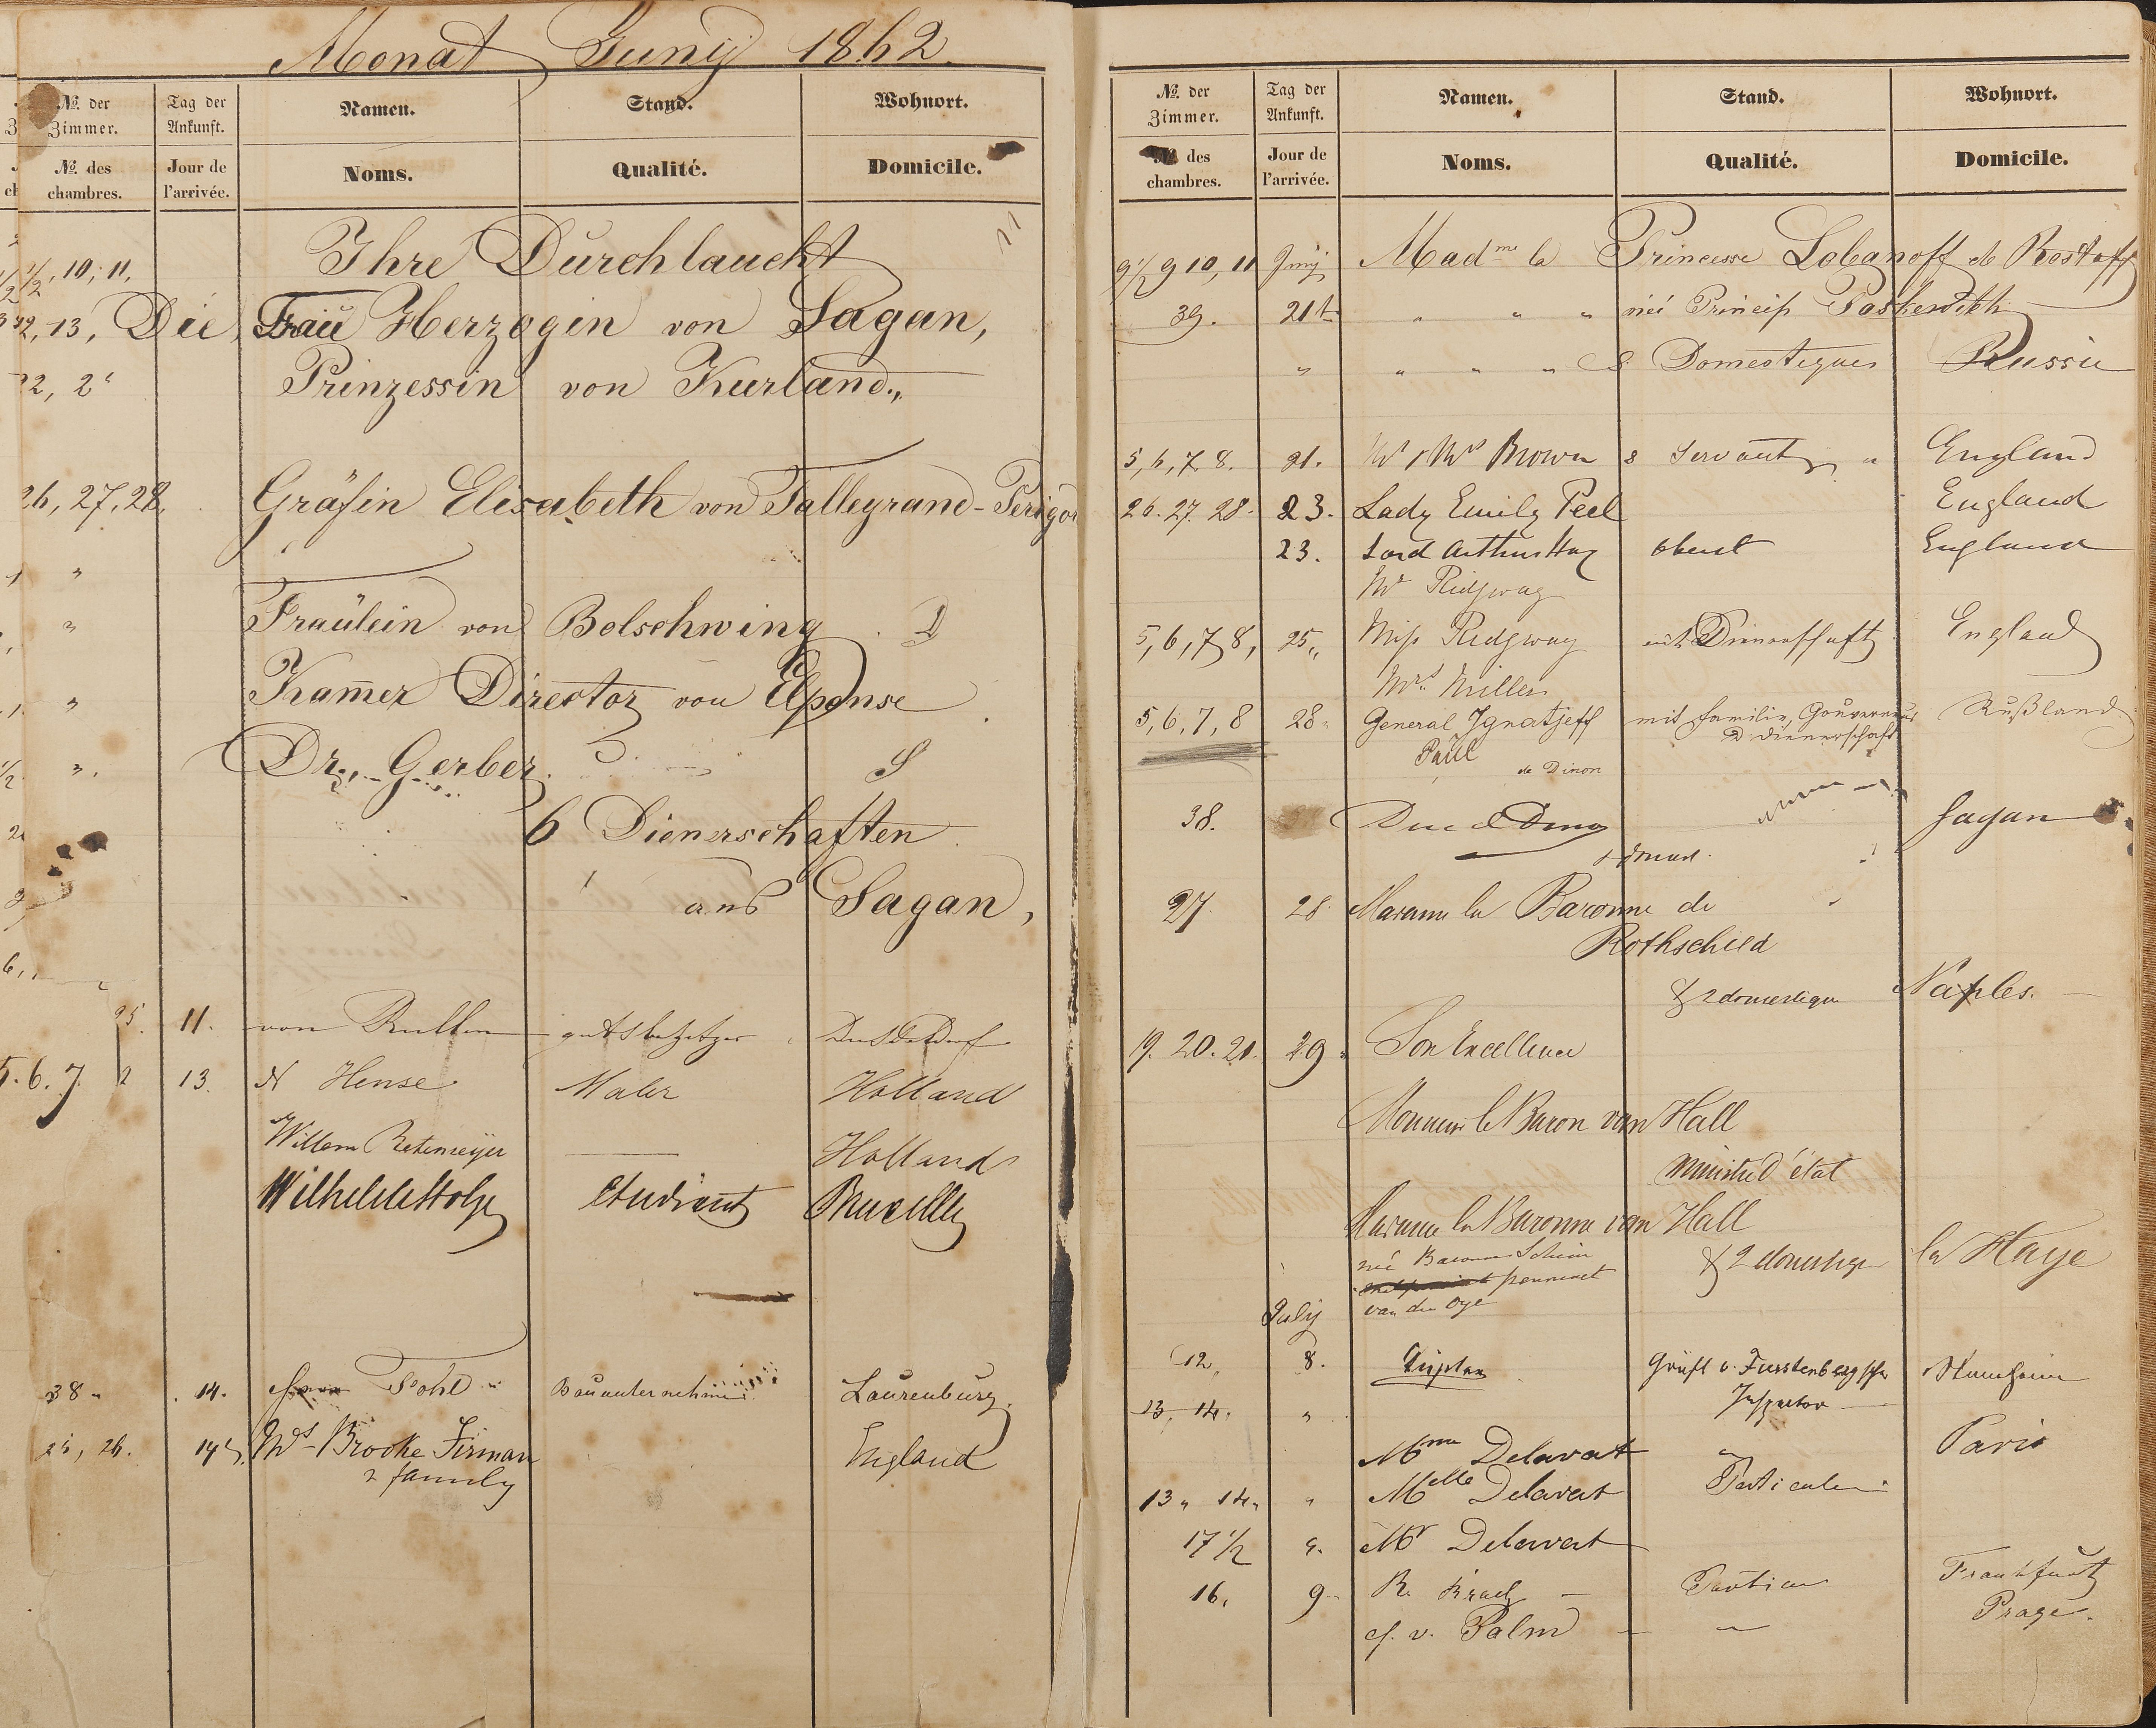 Monat Junij 1862.
№. der Zimmer. Tag der Ankunft. Namen. Stand. Wohnort.
№. des chambres. Jour de l'arrivée. Noms. Qualité. Domicile.
11
1/2, 10, 11, Ihre Durchlaucht
12, 13, Die Frau Herzogin von Sagan,
Prinzessin von Kurland.,,
26, 27, 28, Gräfin Elisabeth von Talleyrand-Perigor
Fraülein von Bolschwing
Kam̅er Director von Elpons
Dr. Gerber
6 Dienerschaften
aus Sagan,
25. 11. von
5. 6. 7. 13. N Hense Maler Holland
Willem Retemeyer Holland
etudiant Bruxelles
38 14. Pohl Bauunternehmer Laurenburg.
25, 26. 14 Mrs Brooke Firman England
& family
№. der Zimmer. Tag der Ankunft. Namen. Stand. Wohnort.
№. des chambres. Jour de l'arrivée. Noms. Qualité. Domicile.
9 1/2 9 10, 11 Junij Madme la Princesse Lobanoff de Rostoff
39. 21t " " " née Paskewitch
" " " " 8 Domestiques Russie
5, 6, 7, 8. 21. Mr & Mrs Brown 8 Servants England
26. 27. 28. 23. Lady Emily Peel England
23. Lord Arthur Hay Oberst England
Mr Ridgway
5, 6, 7, 8, 25,, Miss Ridgway mit Dienerschaft England
Mrs. Miller
5, 6, 7, 8 28 General Ignatjeff mit Familie, Gouverneur Rußland.
Paul & Dienerschaft
de Dinon
38. Duc de Dino Sagan
27. 28. Madame la Baronne de
Rothschild
& 2 domestiques Naples.
19. 20. 21. 29 Son Excellence
Monsieur le Baron van Hall
Ministre d'état
Madame la Baronne van Hall
née Baronne Schim & 2 domestiques la Haye
van der Oye
July
12. 8. Gräfl v. Furstenbergscher Stammheim
Inspector
13, 14, "
Mme Delavat " Paris
13 " 14 " " Melle Delavat Particulier
17 1/2 " Mr Delavat
16, 9 R. Particu Frankfurt
v. Palm Prage.